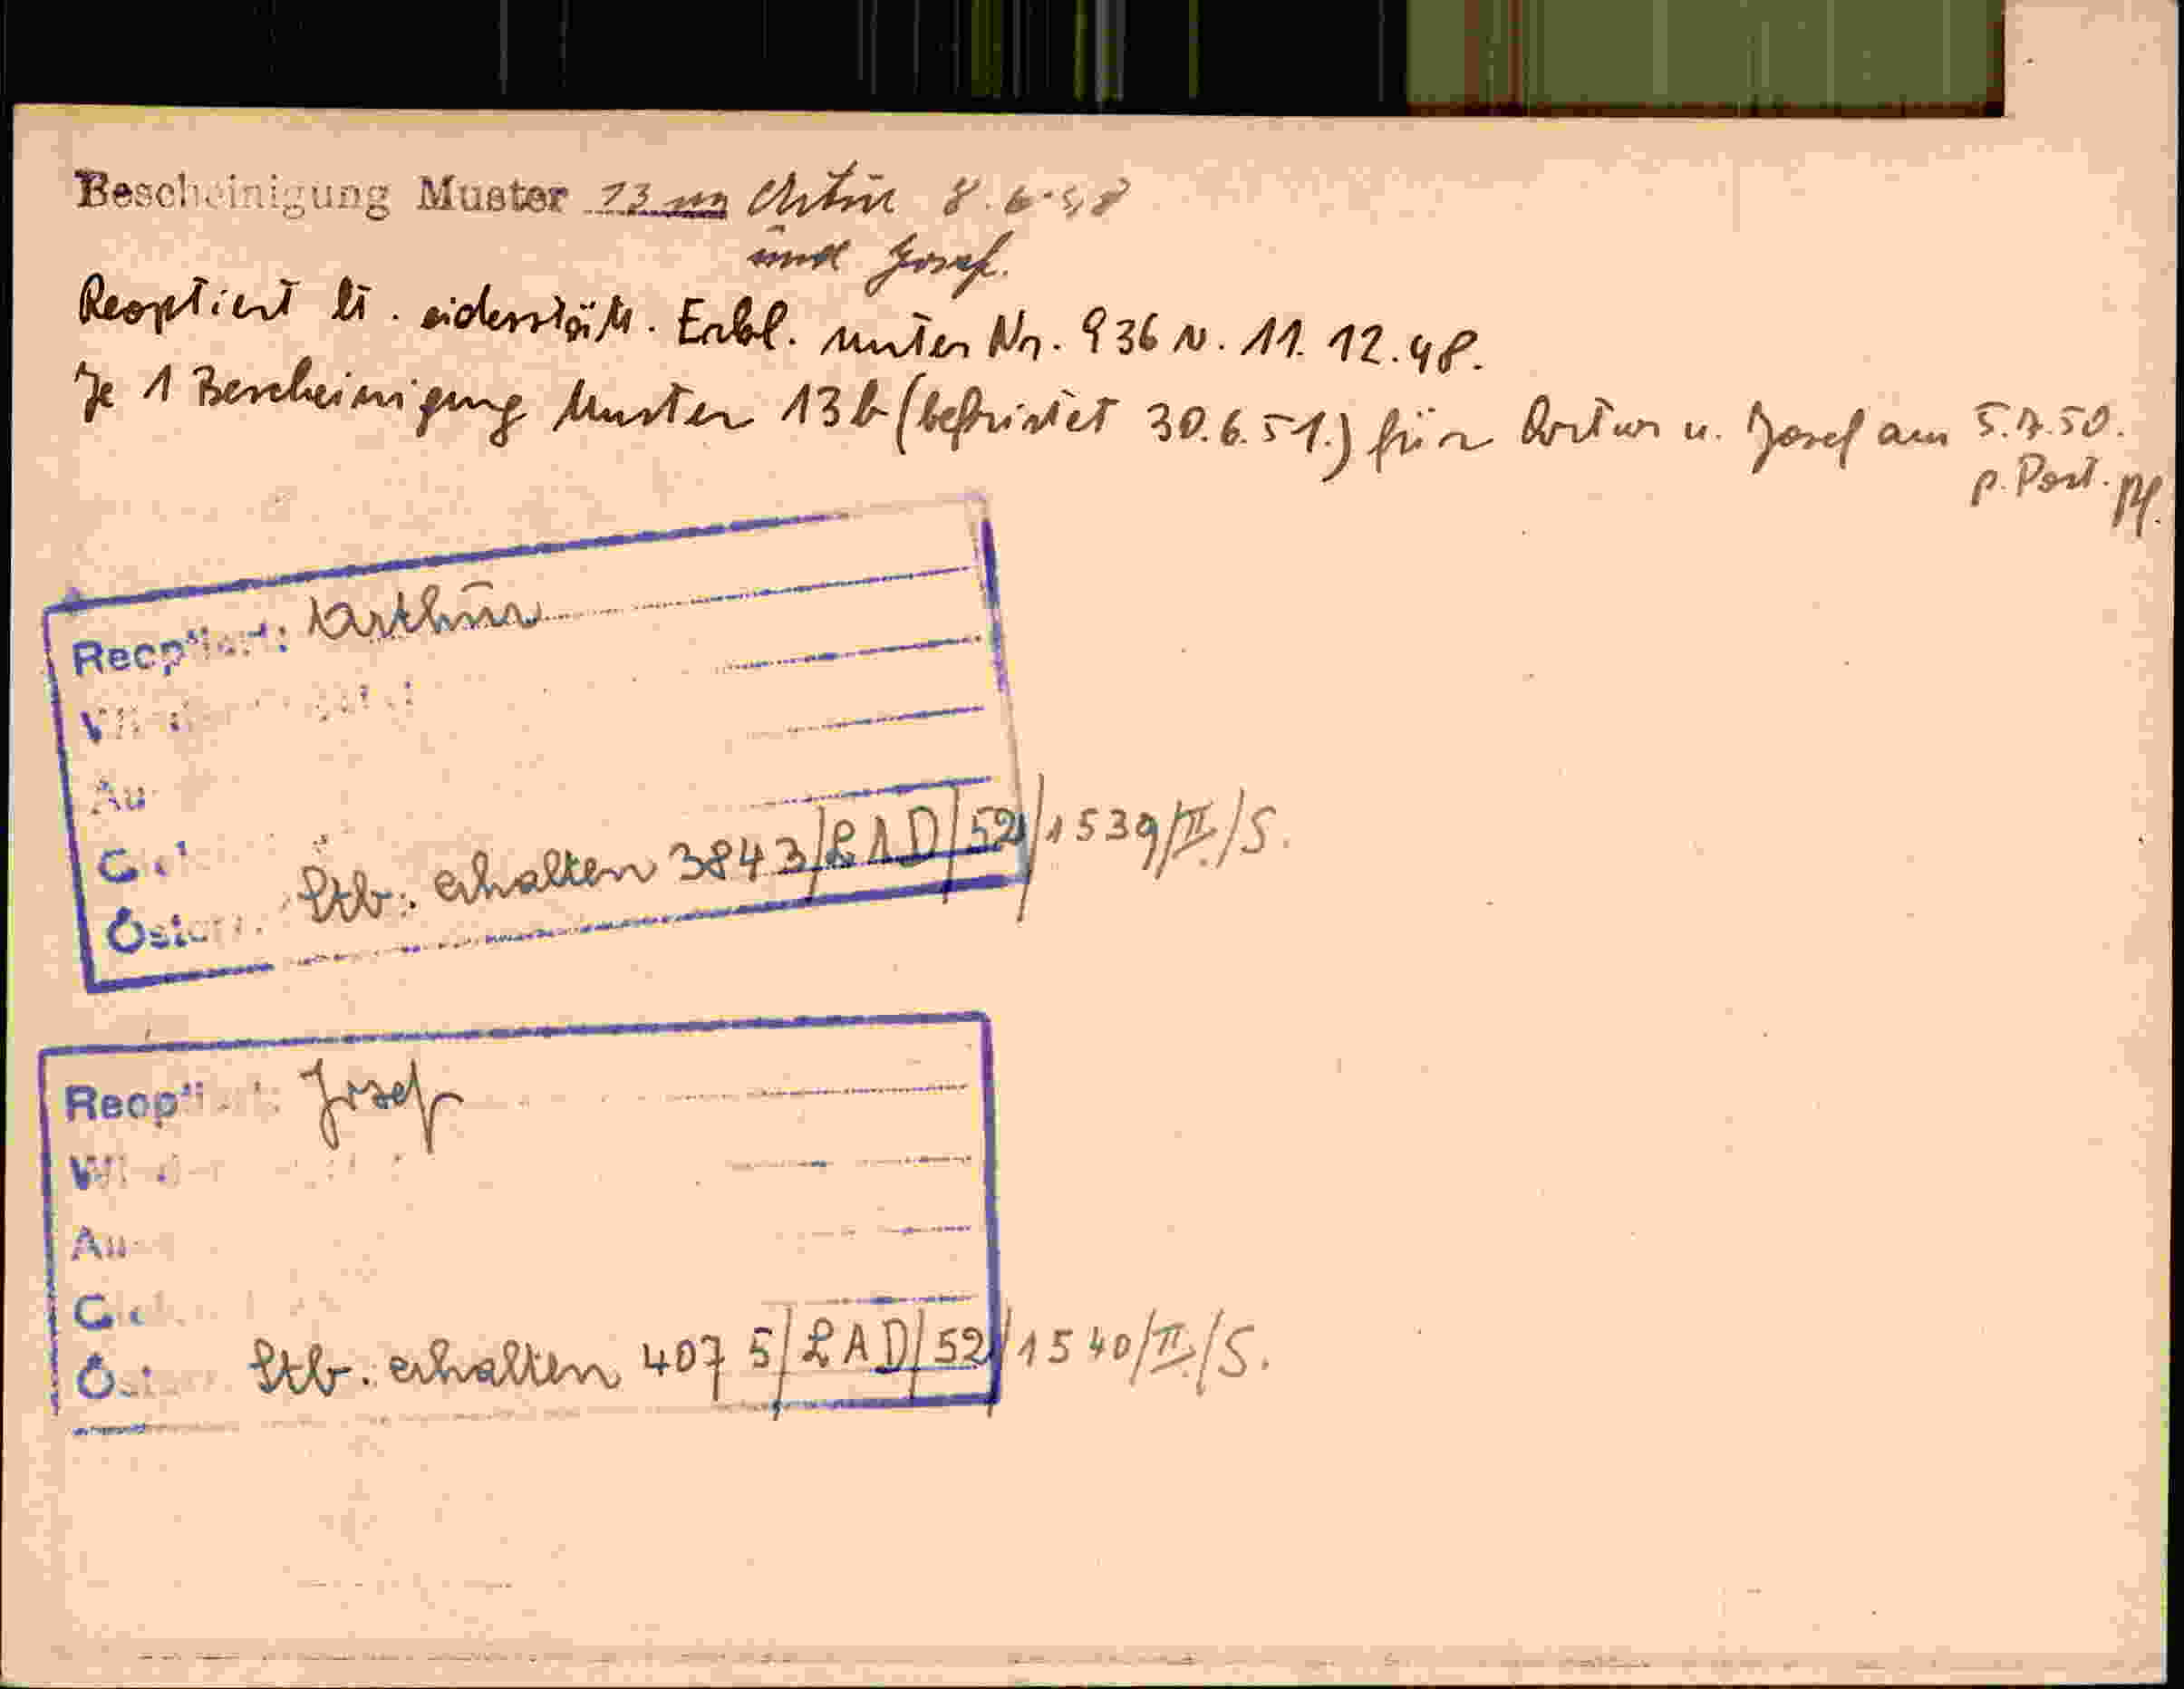 Bescheinigung Muster 13 Artur 8.6.48
und Josef.
Reoptiert lt. eidesstätt. Erkl. unter Nr. 936 v. 11.12.48.
Je 1 Bescheinigung Muster 13b (befristet 30.6.51.) für Artur u. Josef am 5.7.50.
p. Post.
Reoptiert: Arthur
Stb. erhalten 3843/LAD/52/1539/II./S.
Österr.
Reoptiert: Josef
Stb. erhalten 4075/LAD/52/1540/II./S.